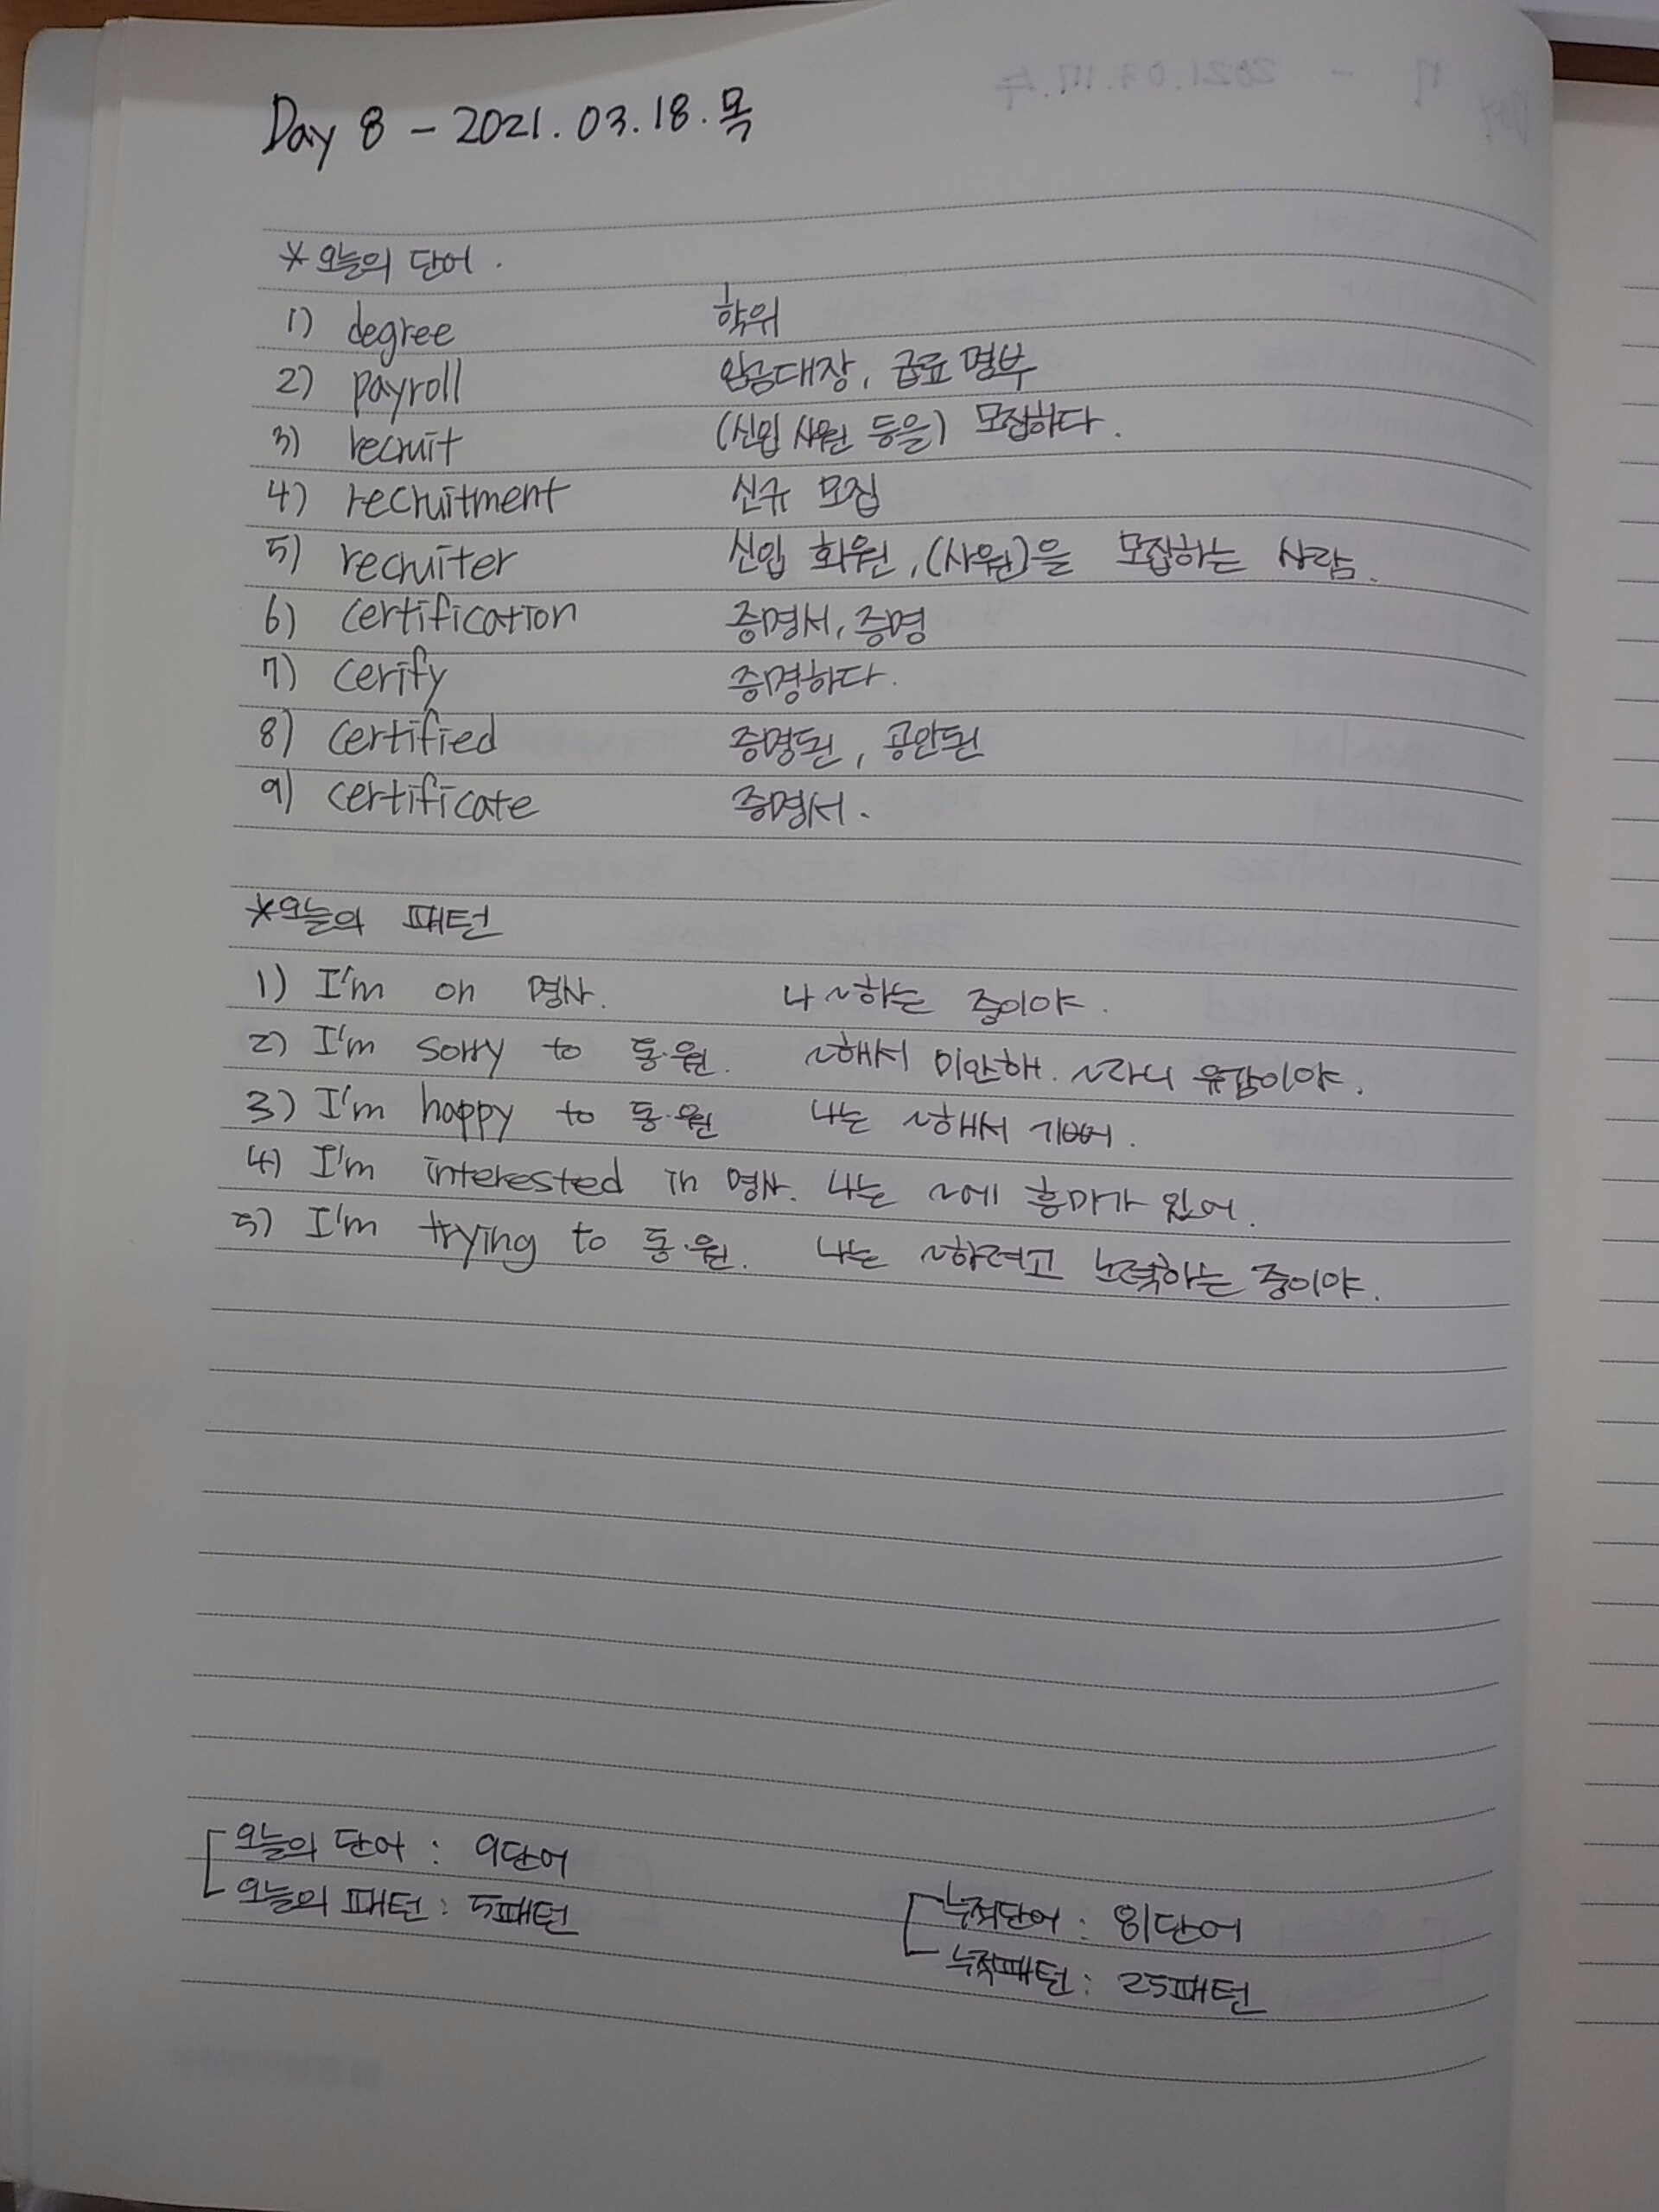 Day 8 - 2021.03.18.목
*오늘의 단어.
1) degree 학위
2) payroll 임금대장, 급료명부
3) recruit (신입 사원 등을) 모집하다.
4) recruitment 신규 모집
5) recruiter 신입 회원, (사원)을 모집하는 사람.
6) certification 증명서, 증명
7) cerify 증명하다.
8) certified 증명된, 공인된
9) certificate 증명서.
*오늘의 패턴
1) I'm on 명사. 나 ~하는 중이야.
2) I'm sorry to 동·원. ~해서 미안해. ~라니 유감이야.
3) I'm happy to 동·원 나는 ~해서 기뻐.
4) I'm interested in 명사. 나는 ~에 흥미가 있어.
5) I'm trying to 동·원. 나는 ~하려고 노력하는 중이야.
오늘의 단어 : 9단어
오늘의 패턴 : 5패턴
누적단어 : 81단어
누적패턴 : 25패턴